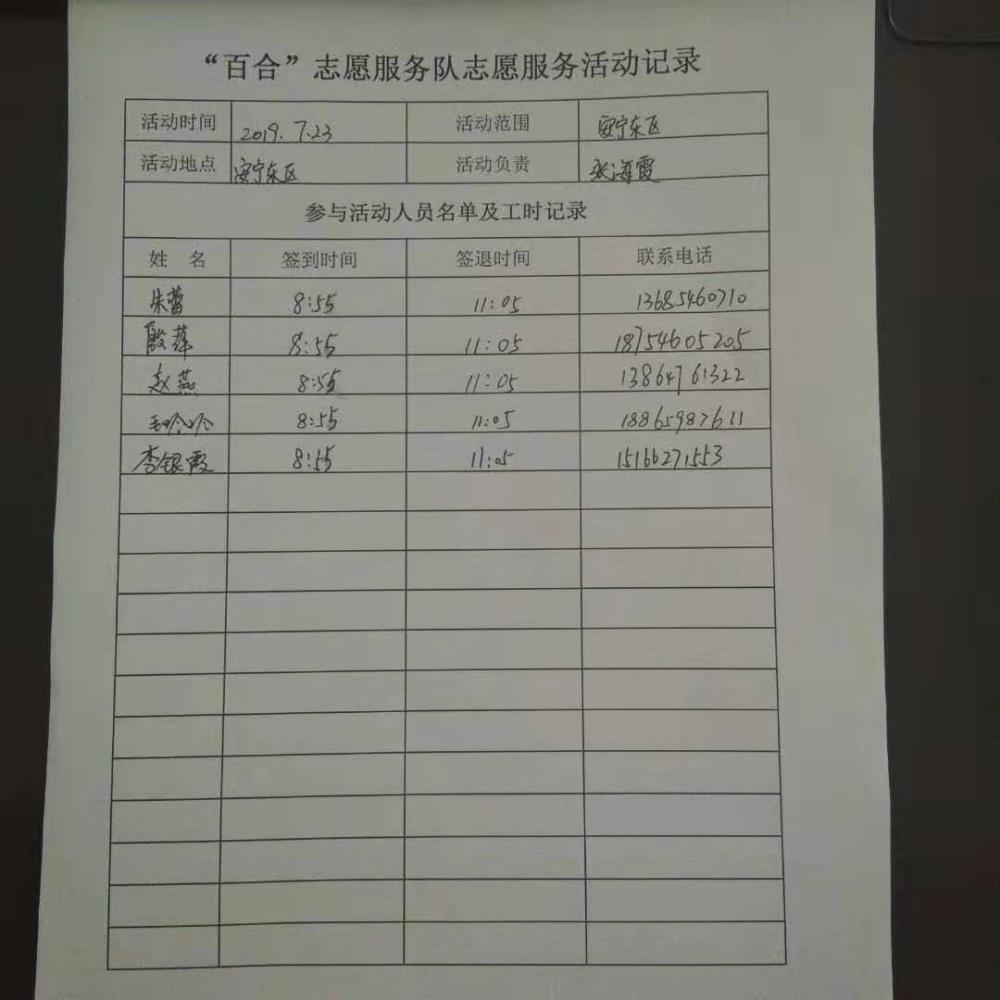 “百合”志愿服务队志愿服务活动记录
活动时间 2019.7.23 活动范围 安宁东区
活动地点 安宁东区 活动负责 张海霞
参与活动人员名单及工时记录
姓 名 签到时间 签退时间 联系电话
朱蕾 8:55 11:05 13685460710
殷萍 8:55 11:05 18754605205
赵燕 8:55 11:05 13864761322
8:55 11:05 18865987611
李银霞 8:55 11:05 15166271553